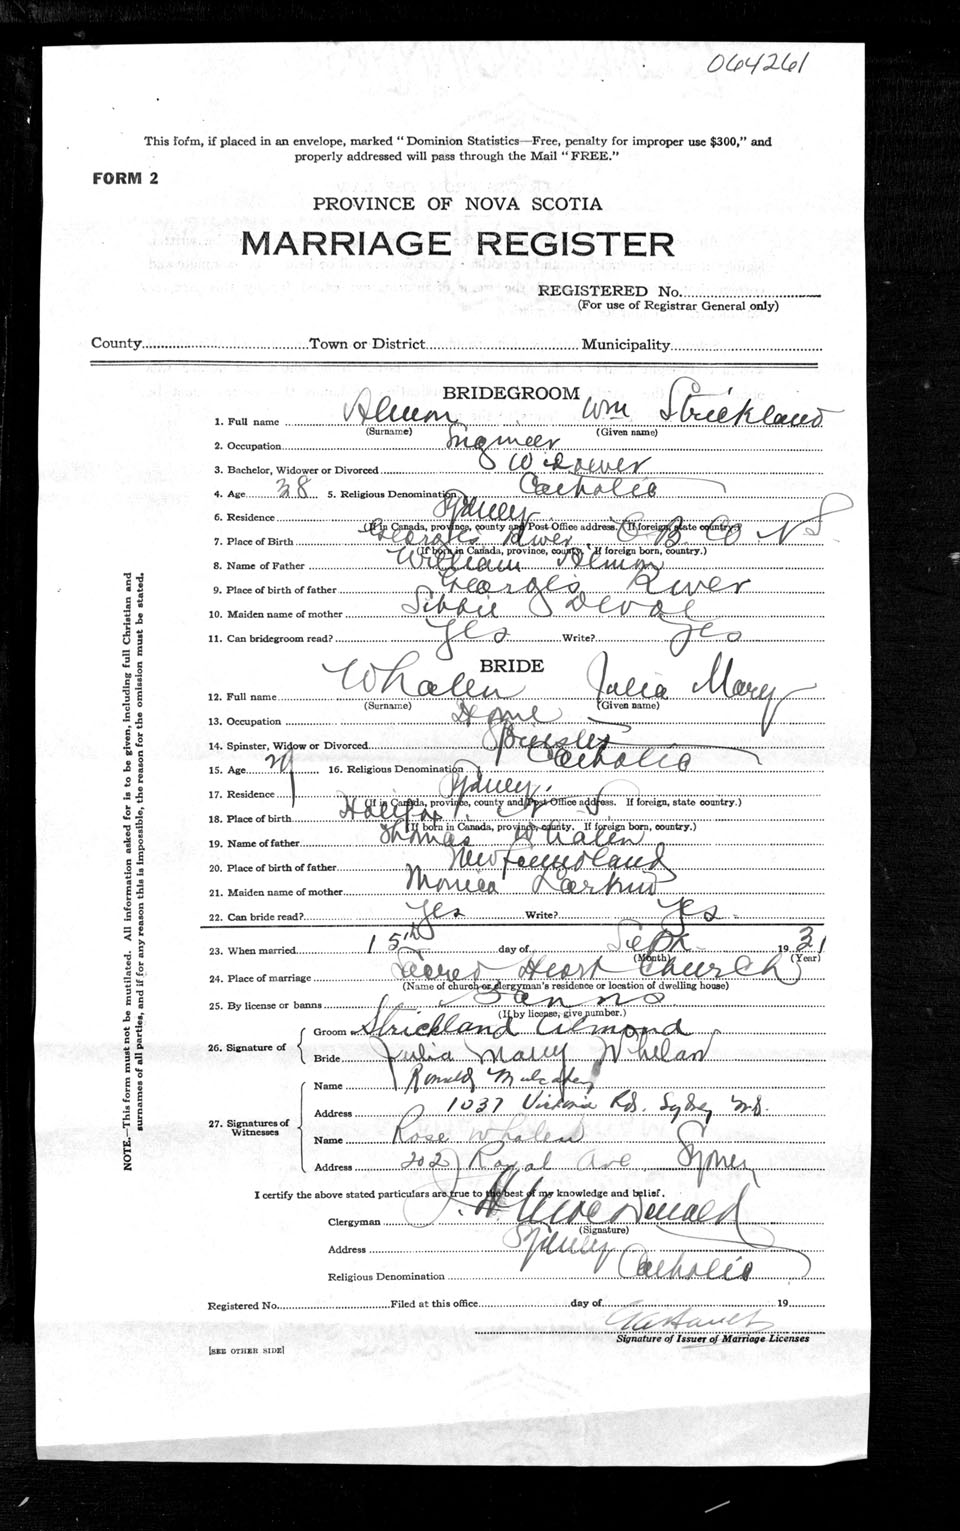 064261
This form, if placed in an envelope, marked "Dominion Statistics—Free, penalty for improper use $300," and
properly addressed will pass through the Mail "FREE."
FORM 2
PROVINCE OF NOVA SCOTIA
MARRIAGE REGISTER
REGISTERED No.
(For use of Registrar General only)
County Town or District Municipality
BRIDEGROOM
1. Full name Almon Wm Strickland
(Surname) (Given name)
2. Occupation Engineer
3. Bachelor, Widower or Divorced Widower
4. Age 38 5. Religious Denomination Catholic
6. Residence Sydney
(If in Canada, province, county and Post Office address. If foreign, state country.)
7. Place of Birth Georges River C B Co N S
(If born in Canada, province, county. If foreign born, country.)
8. Name of Father William Almon
9. Place of birth of father Georges River
10. Maiden name of mother Sibbie
11. Can bridegroom read? Yes Write? Yes
BRIDE
12. Full name Whalen Julia Mary
(Surname) (Given name)
13. Occupation Home
14. Spinster, Widow or Divorced Spinster
15. Age 16. Religious Denomination Catholic
17. Residence Sydney
(If in Canada, province, county and Post Office address. If foreign, state country.)
18. Place of birth Halifax N S
(If born in Canada, province, county. If foreign born, country.)
19. Name of father Thomas Whalen
20. Place of birth of father Newfoundland
21. Maiden name of mother Monica Larkin
22. Can bride read? Yes Write? Yes
23. When married 15th day of Sept 1931
(Month) (Year)
24. Place of marriage Sacred Heart Church
(Name of church or clergyman's residence or location of dwelling house)
25. By license or banns Banns
(If by license, give number.)
26. Signature of
Groom Strickland Almond
Bride Julia Mary Whelan
27. Signatures of Witnesses
Name Ronald
Address 1037 Victoria Rd. Sydney N.S.
Name Rose Whalen
Address 202 Royal Ave Sydney
I certify the above stated particulars are true to the best of my knowledge and belief.
Clergyman J. H. MacDonald
(Signature)
Address Sydney
Religious Denomination Catholic
Registered No. Filed at this office day of 19
Signature of Issuer of Marriage Licenses
[SEE OTHER SIDE]
NOTE.—This form must not be mutilated. All information asked for is to be given, including full Christian and
surnames of all parties, and if for any reason this is impossible, the reason for the omission must be stated.